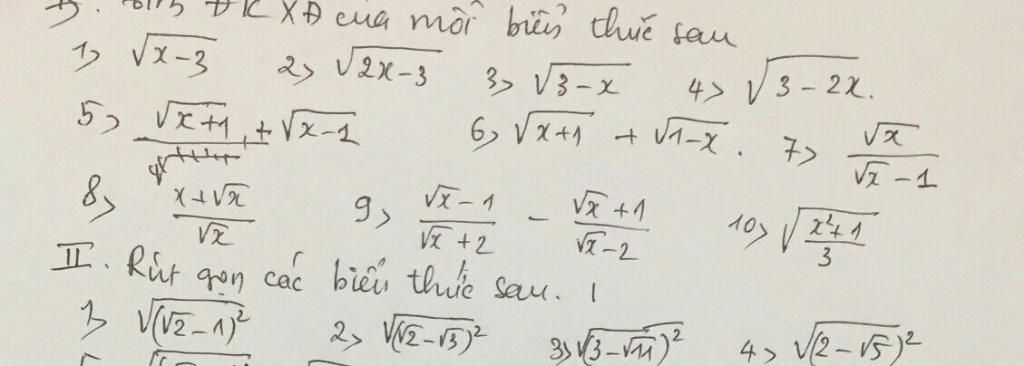 Tìm ĐKXĐ của mỗi biểu thức sau
1> √(x-3) 2> √(2x-3) 3> √(3-x) 4> √(3-2x).
5> √(x+1) + √(x-1) 6> √(x+1) + √(1-x). 7> √x/(√x-1)
8> (x+√x)/√x 9> (√x-1)/(√x+2) - (√x+1)/(√x-2) 10> √((x²+1)/3)
II. Rút gọn các biểu thức sau.
1> √((√2-1)²) 2> √((√2-√3)²) 3> √((3-√11)²) 4> √((2-√5)²)